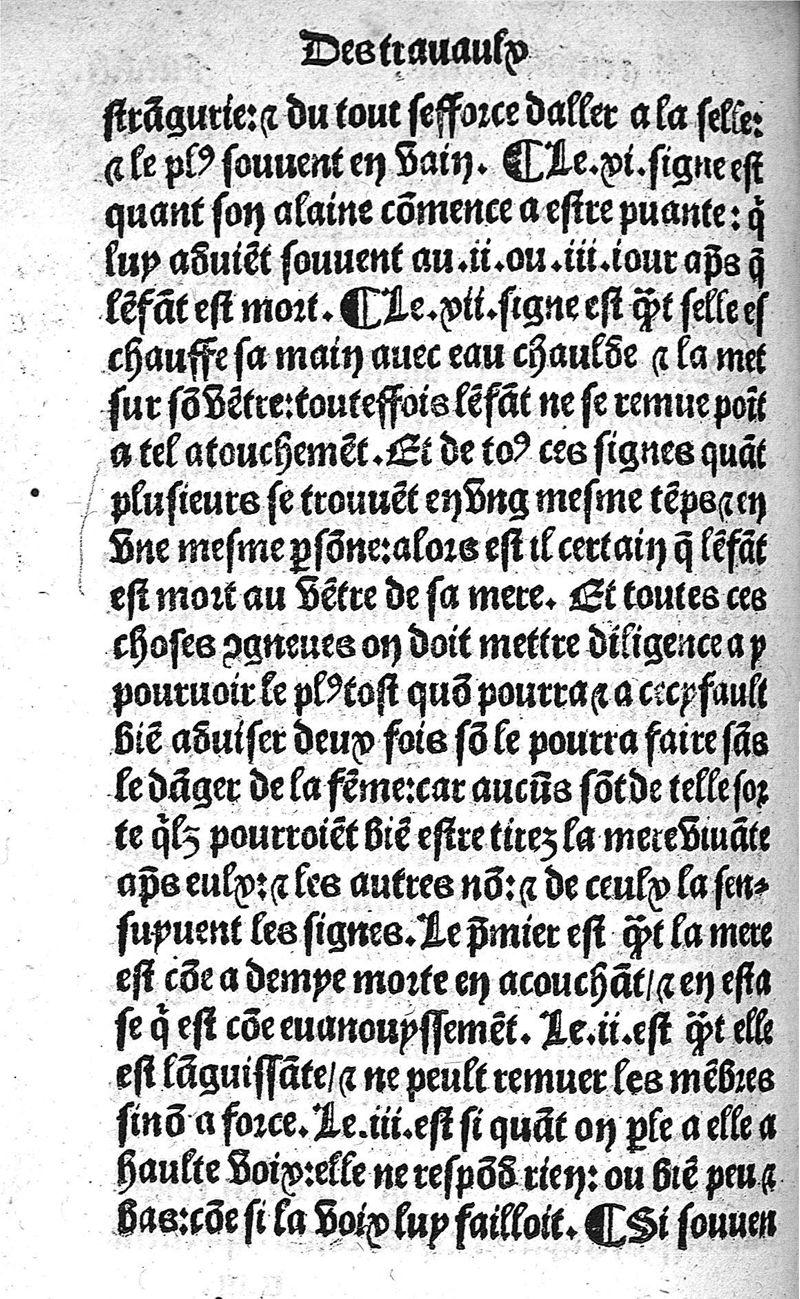 Des trauaulx
strãgurie: ⁊ du tout sefforce daller a la selle:
⁊ le plꝰ souuent en vain. ¶ Le.xi.signe est
quant son alaine cõmence a estre puante: q̃
luy aduiẽt souuent au.ii.ou.iii.iour ap̃s q̃
lẽfãt est mort. ¶ Le.xii.signe est q̃t selle es
chauffe sa main auec eau chaulde ⁊ la met
sur sõ vẽtre: touteffois lẽfãt ne se remue poĩt
a tel atouchemẽt. Et de toꝰ ces signes quãt
plusieurs se trouuẽt en vng mesme tẽps ⁊ en
vne mesme ꝑsõne: alors est il certain q̃ lẽfãt
est mort au vẽtre de sa mere. Et toutes ces
choses ꝯgneues on doit mettre diligence a y
pouruoir le plꝰ tost quõ pourra ⁊ a cecy fault
biẽ aduiser deux fois sõ le pourra faire sãs
le dãger de la fẽme: car aucũs sõt de telle sor
te q̃lz pourroiẽt biẽ estre tirez la mere viuãte
ap̃s eulx: ⁊ les autres nõ: ⁊ de ceulx la sen-
suyuent les signes. Le p̃mier est q̃t la mere
est cõe a demye morte en acouchãt/ ⁊ en esta
se q̃ est cõe euanouyssemẽt. Le.ii.est q̃t elle
est lãguissãte/ ⁊ ne peult remuer les mẽbres
sinõ a force. Le.iii.est si quãt on ꝑle a elle a
haulte voix: elle ne respõd rien: ou biẽ peu ⁊
bas: cõe si la voix luy failloit. ¶ Si souuen